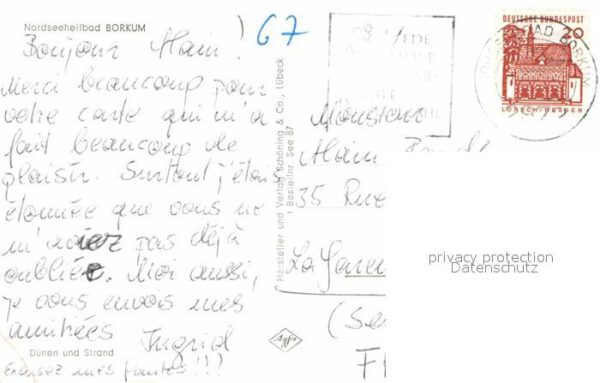 Nordseeheilbad BORKUM
67
Bonjour Alain!
Merci beaucoup pour
votre carte qui m'a
fait beaucoup de
plaisir. Surtout j'étais
étonnée que vous ne
m'aviez pas déjà
oubliée. Moi aussi,
je vous envois mes
amitiées Ingrid
Dünen und Strand
Excusez mes fautes!!!
Hersteller und Verlag Schöning & Co., Lübeck
1 Bestellnr. See 87
Agfa
JEDE
DEUTSCHE BUNDESPOST
20
LORSCH/HESSEN
BAD BORKUM
Monsieur
Alain
35 Rue
La Garenne
(Sei
F
privacy protection
Datenschutz